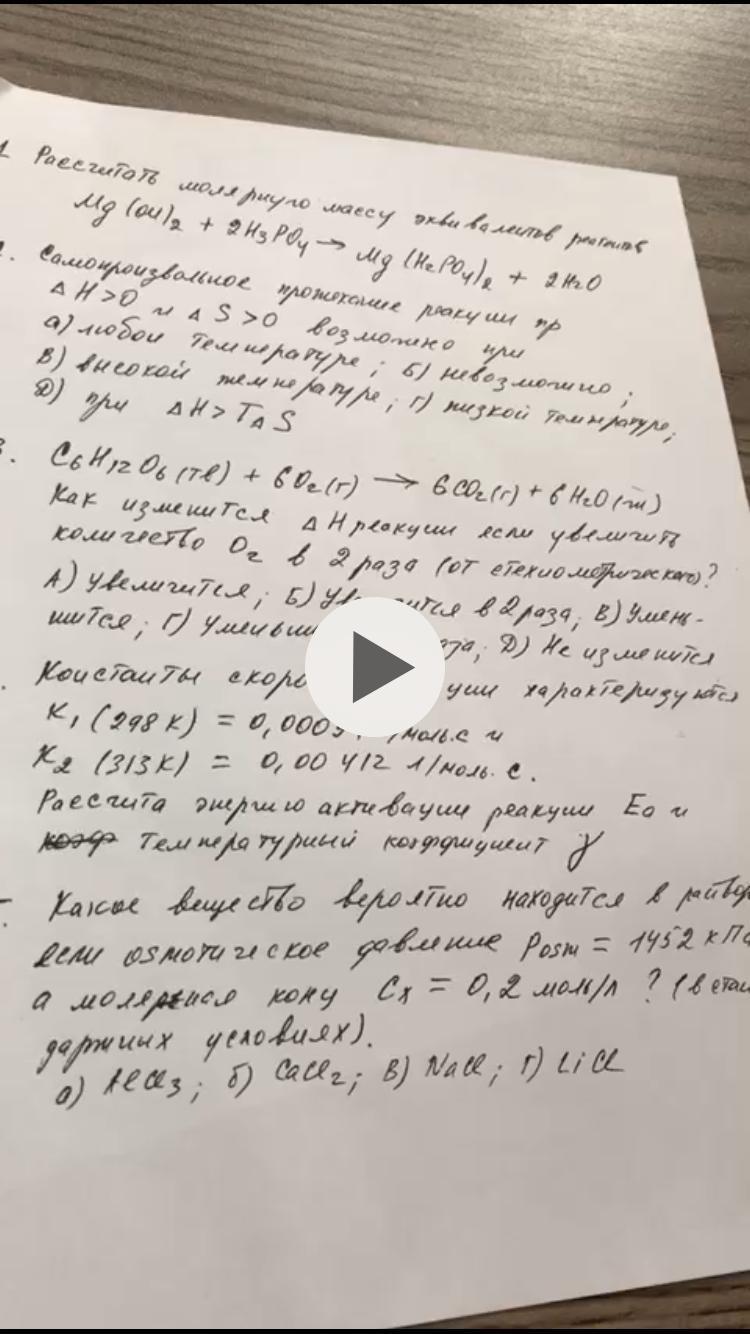 1 Рассчитать молярную массу эквивалентов реагентов
Mg(OH)2 + 2H3PO4 → Mg(H2PO4)2 + 2H2O
2. Самопроизвольное протекание реакции пр
ΔH>0 и ΔS>0 возможно при
а) любой температуре; Б) невозможно;
В) высокой температуре; Г) низкой температуре;
Д) при ΔH > TΔS
3. C6H12O6(тв) + 6O2(г) → 6CO2(г) + 6H2O(ж)
Как изменится ΔH реакции если увеличить
количество O2 в 2 раза (от стехиометрического)?
А) Увеличится; Б) в 2 раза; В) Умень-
шится; Г) Д) Не изменится
Константы характеризуются
K1 (298 K) = /моль.с и
K2 (313 K) = 0,00412 л/моль.с.
Рассчита энергию активации реакции Ea и
температурный коэффициент γ
Какое вещество вероятно находится в раствор
если осмотическое давление Posm = 1452 кПа
а молярная конц Cx = 0,2 моль/л ? (в стан
дартных условиях).
а) AlCl3; б) CaCl2; В) NaCl; Г) LiCl